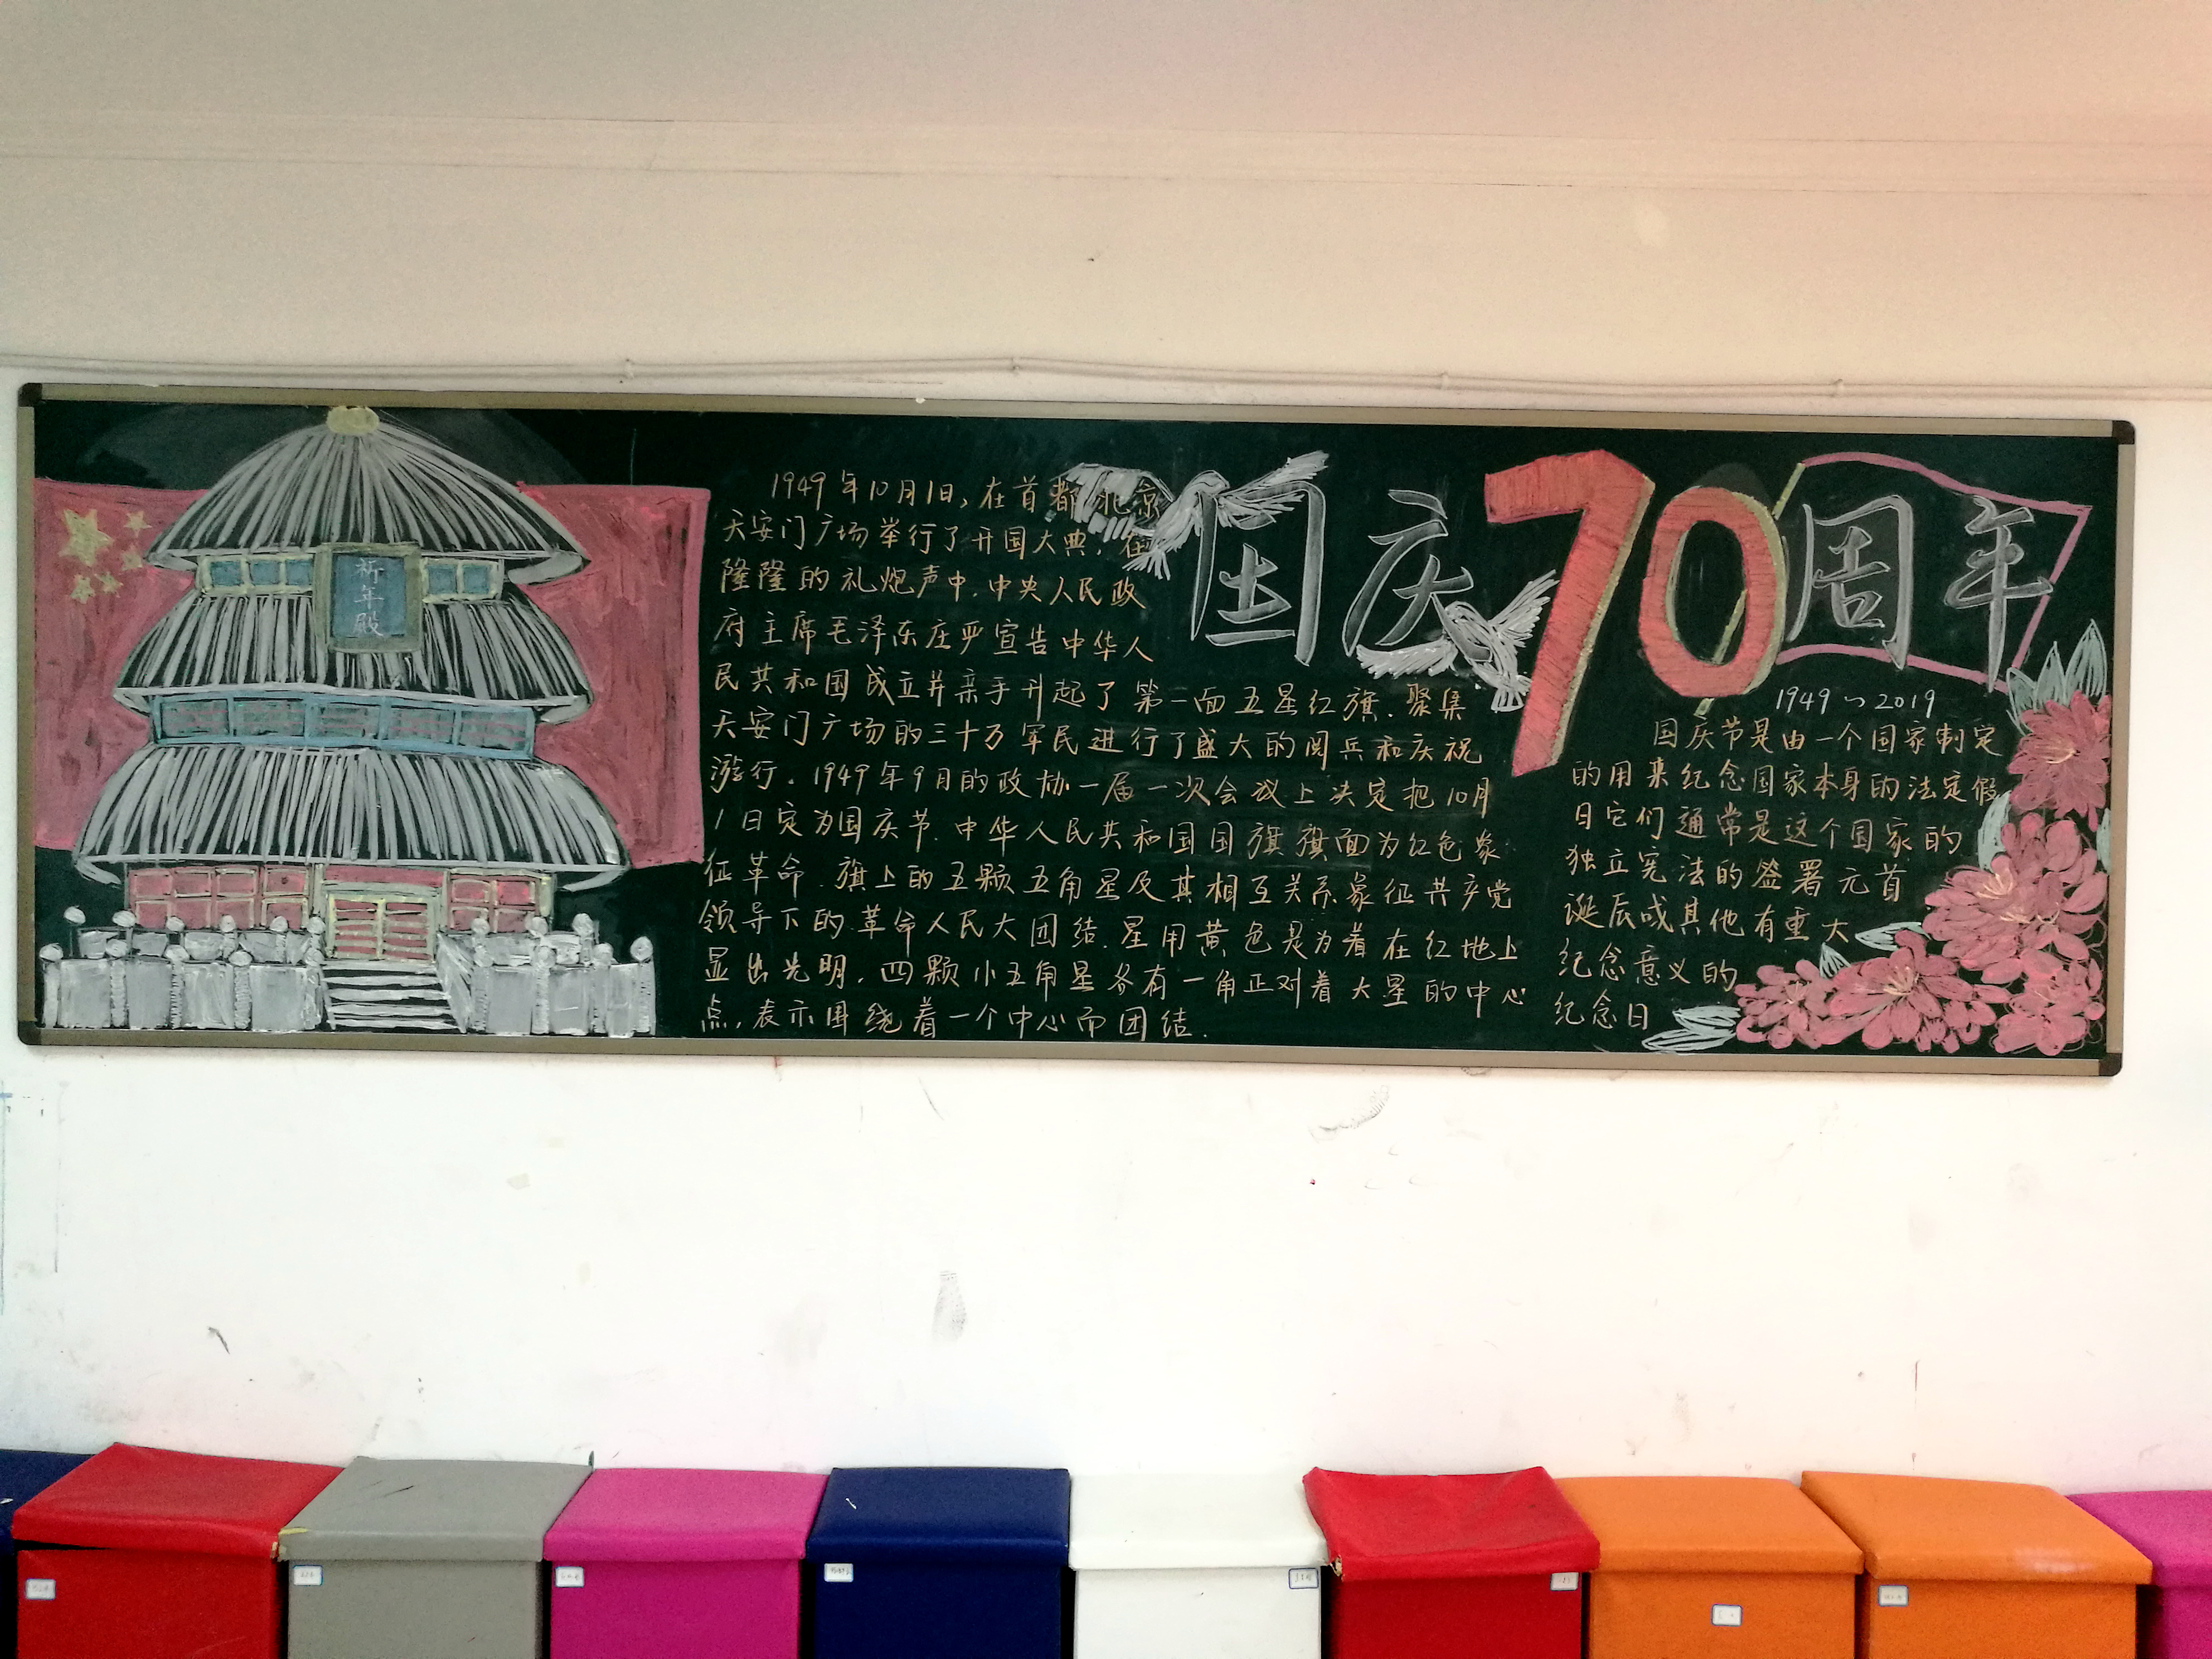 祈年殿
1949年10月1日,在首都北京
天安门广场举行了开国大典,在
隆隆的礼炮声中,中央人民政
府主席毛泽东庄严宣告中华人
民共和国成立并亲手升起了第一面五星红旗.聚集
天安门广场的三十万军民进行了盛大的阅兵和庆祝
游行.1949年9月的政协一届一次会议上决定把10月
1日定为国庆节.中华人民共和国国旗旗面为红色象
征革命.旗上的五颗五角星及其相互关系象征共产党
领导下的革命人民大团结.星用黄色是为着在红地上
显出光明,四颗小五角星各有一角正对着大星的中心
点,表示围绕着一个中心而团结.
国庆70周年
1949~2019
国庆节是由一个国家制定
的用来纪念国家本身的法定假
日它们通常是这个国家的
独立宪法的签署元首
诞辰或其他有重大
纪念意义的
纪念日